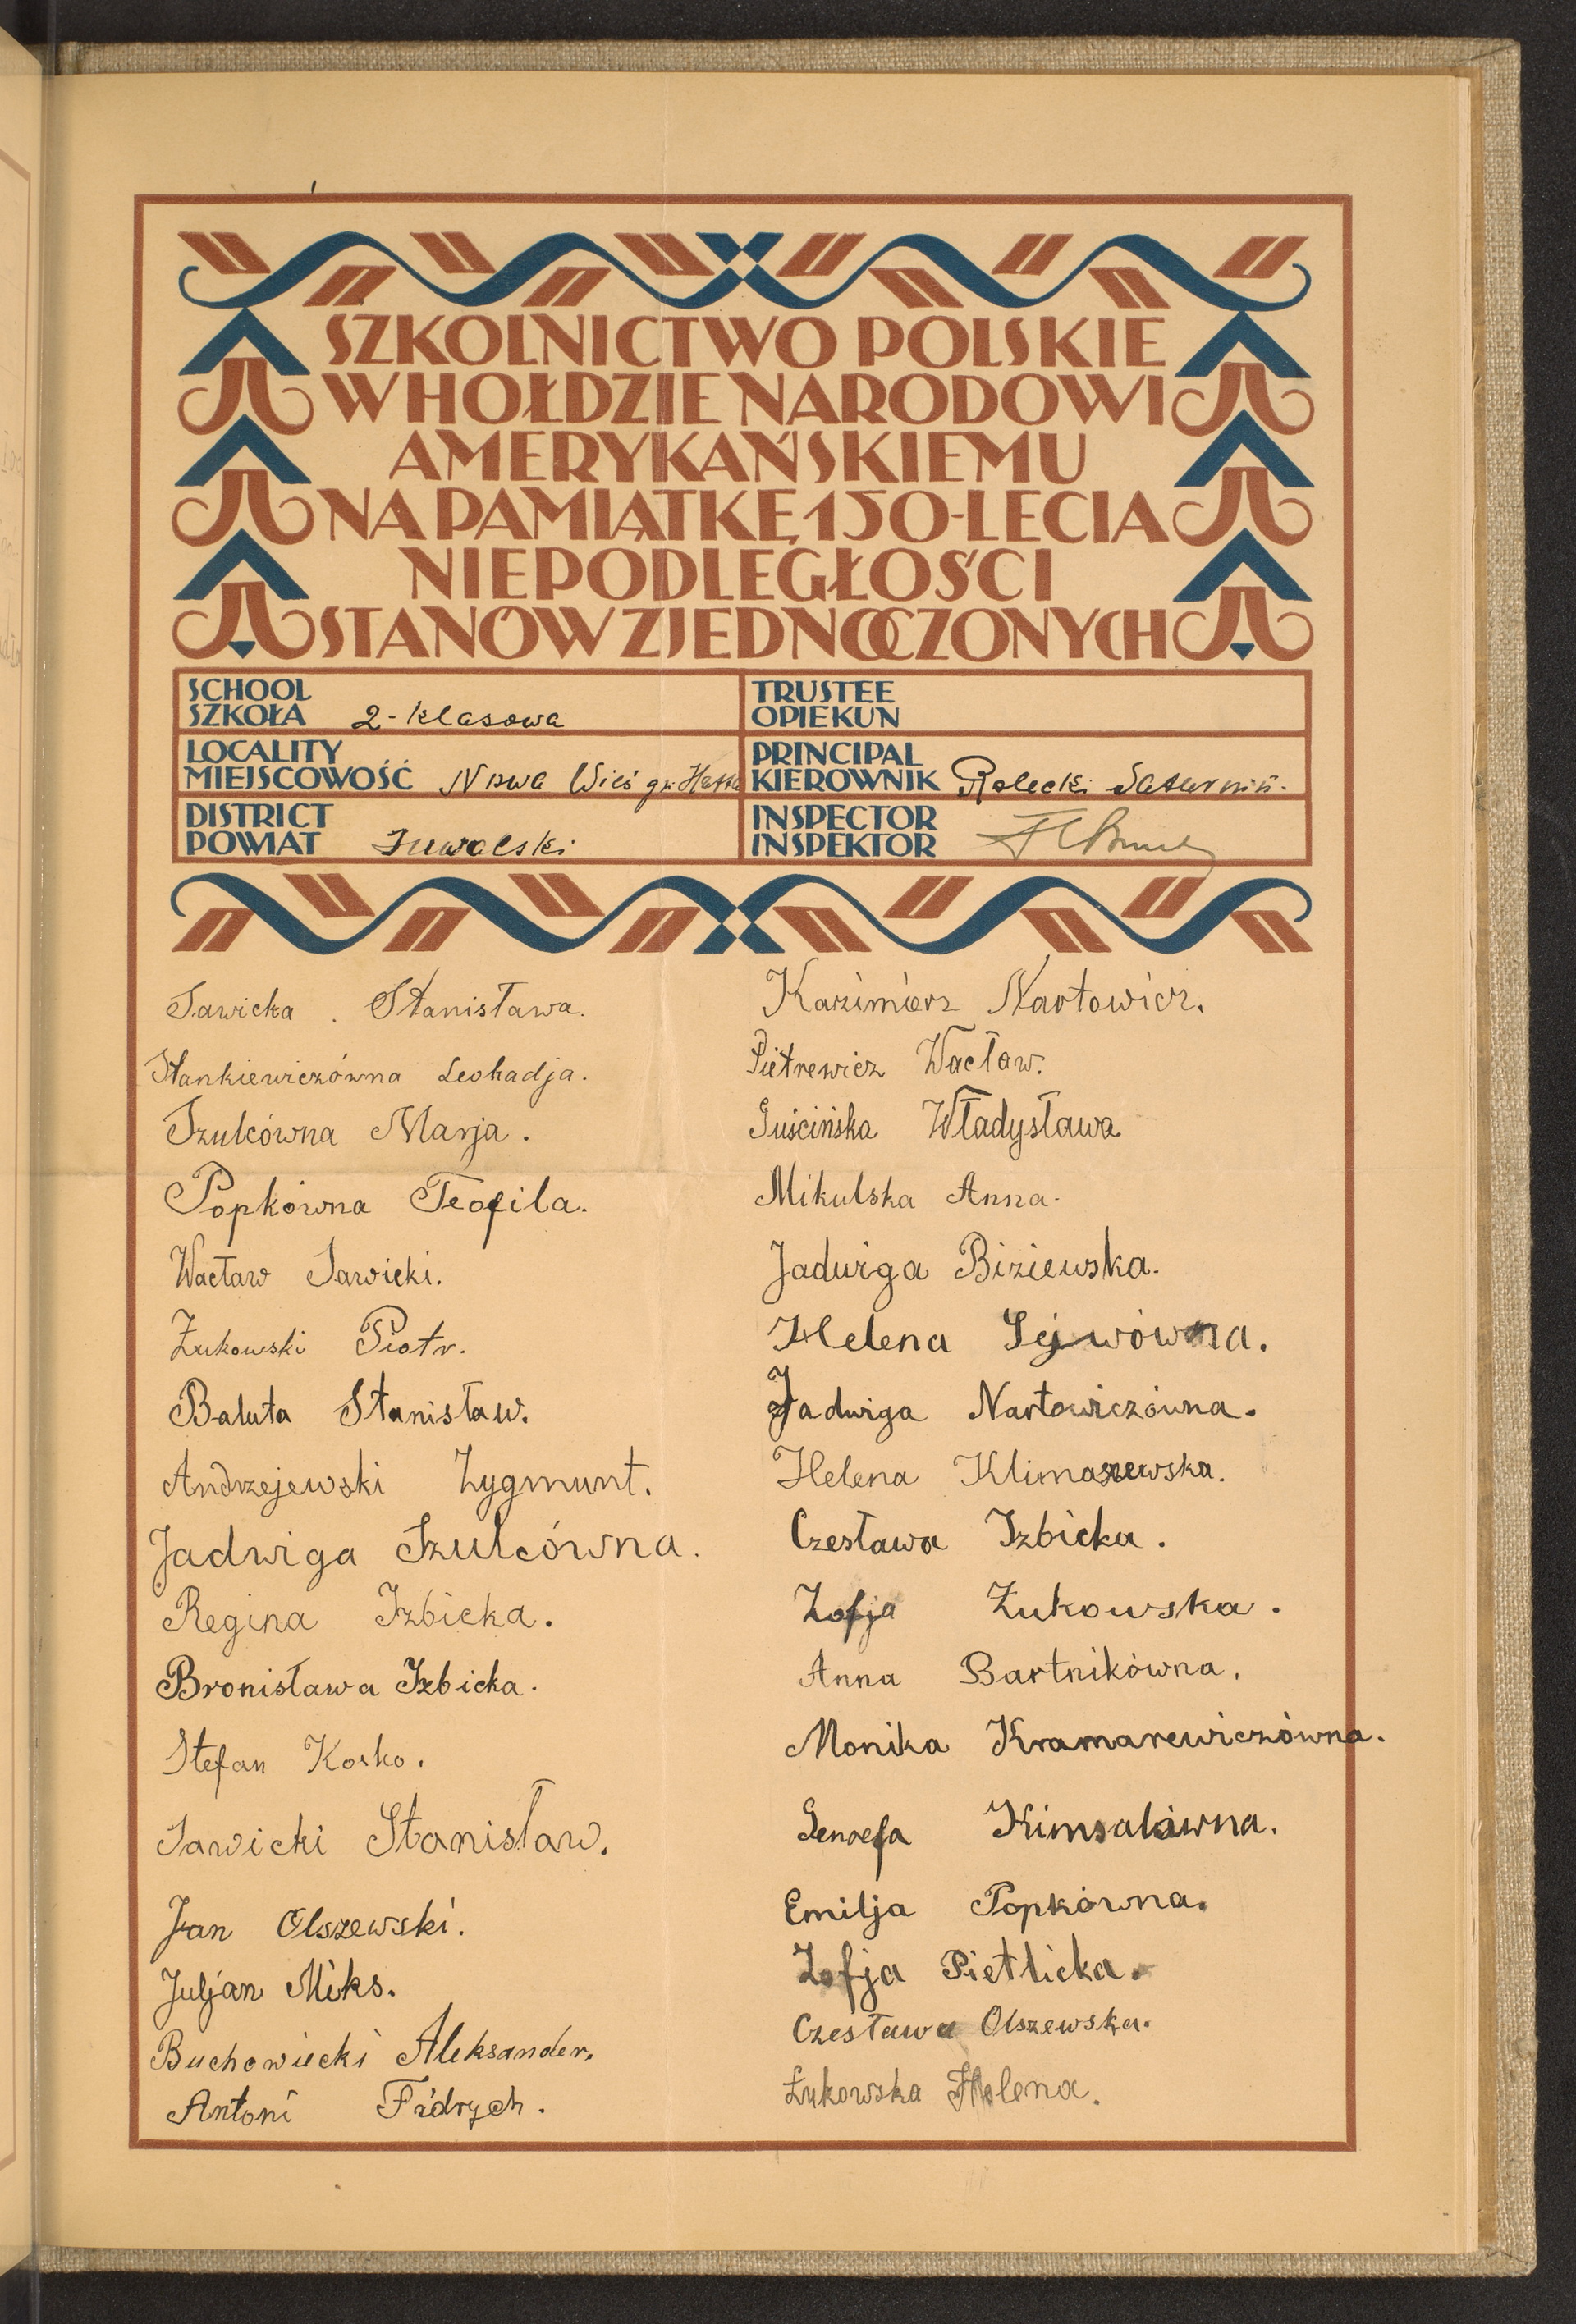 SZKOLNICTWO POLSKIE
W HOŁDZIE NARODOWI
AMERYKAŃSKIEMU
NA PAMIĄTKĘ 150-LECIA
NIEPODLEGŁOŚCI
STANÓW ZJEDNOCZONYCH
SCHOOL
SZKOŁA 2-klasowa
LOCALITY
MIEJSCOWOŚĆ Nowa Wieś gm.
DISTRICT
POWIAT Suwalski
TRUSTEE
OPIEKUN
PRINCIPAL
KIEROWNIK Rolecki Saturnin.
INSPECTOR
INSPEKTOR
Sawicka Stanisława.
Stankiewiczówna Leokadja.
Szulcówna Marja.
Popkówna Teofila.
Wacław Sawicki.
Żukowski Piotr.
Baluta Stanisław.
Andrzejewski Zygmunt.
Jadwiga Szulcówna.
Regina Izbicka.
Bronisława Izbicka.
Stefan Kosko.
Sawicki Stanisław.
Jan Olszewski.
Juljan Miks.
Buchowiecki Aleksander.
Antoni Fidrych.
Kazimierz Nartowicz.
Pietrewicz Wacław.
Guścińska Władysława
Mikulska Anna.
Jadwiga Biziewska.
Helena Sejwówna.
Jadwiga Nartowiczówna.
Helena Klimaszewska.
Czesława Izbicka.
Zofja Żukowska.
Anna Bartnikówna.
Monika Kramarewiczówna.
Genoefa Kimsalówna.
Emilja Popkówna.
Zofja Pietlicka.
Czesława Olszewska.
Żukowska Helena.